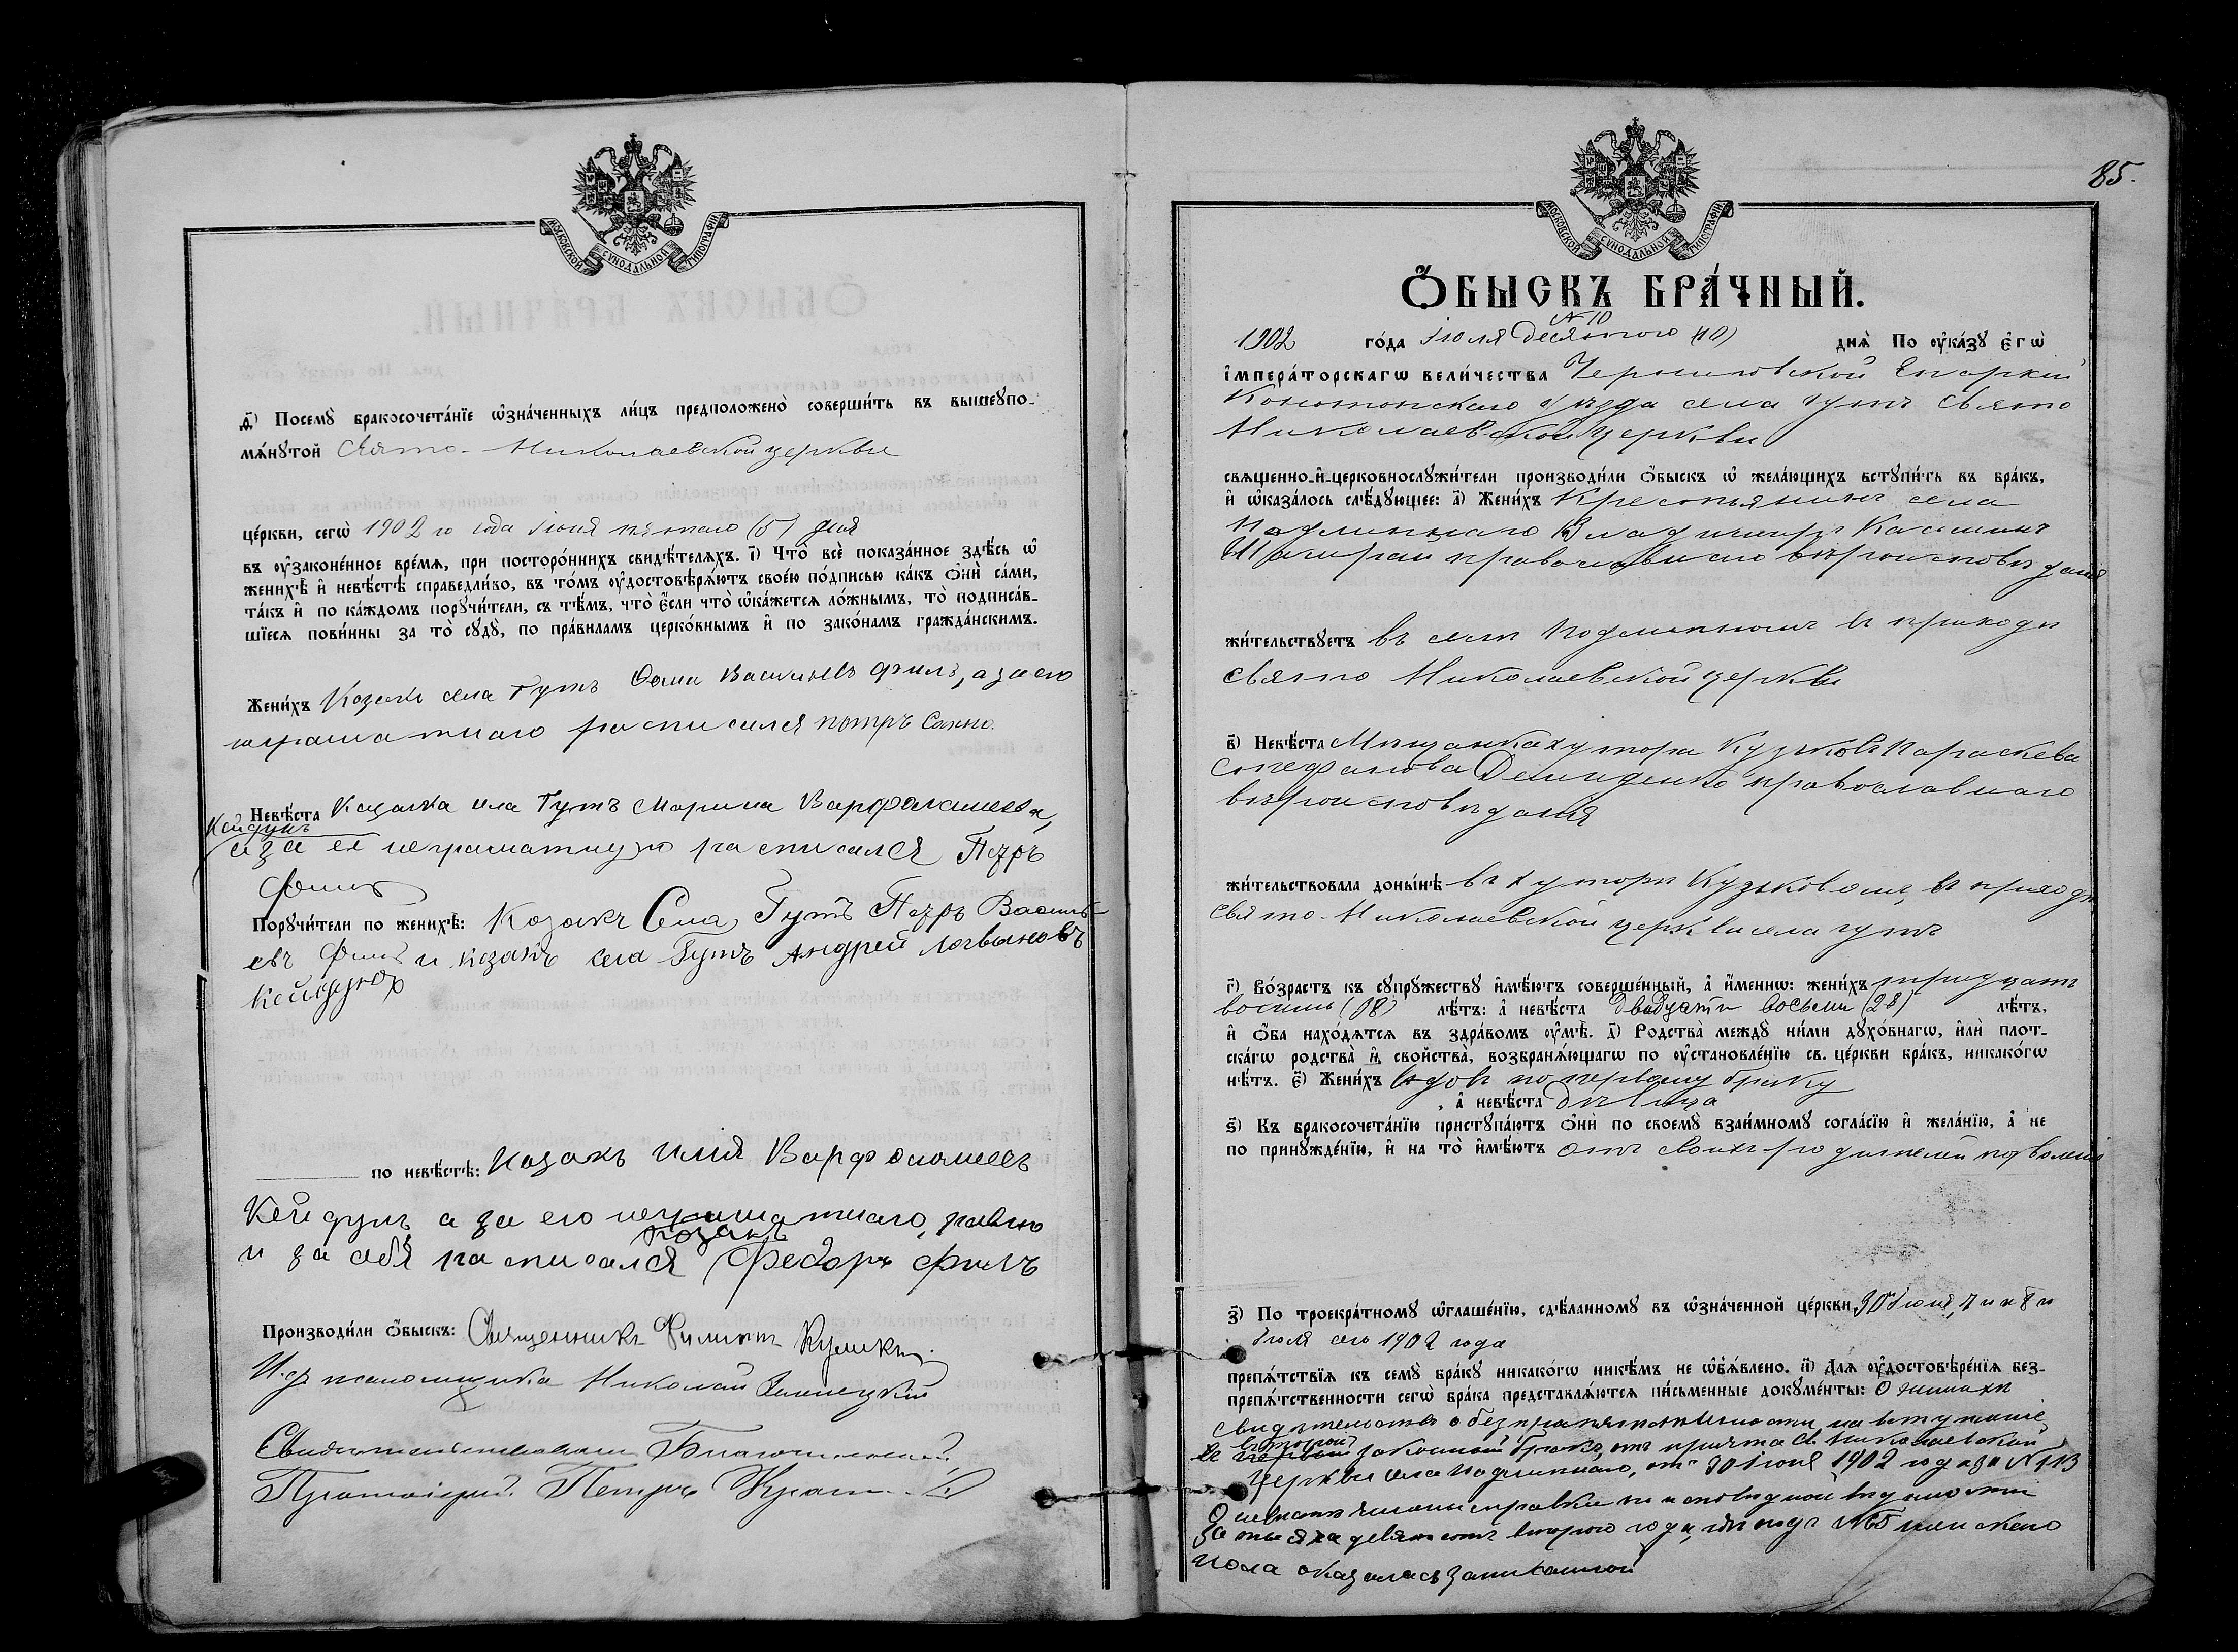 МОСКОВСКОЙ СѴНОДАЛЬНОЙ ТИПОГРАФІИ
д҃) Посемꙋ̀ бракосочета́нїе ѡ҆зна́ченныхъ ли́цъ предположено̀ соверши́ть въ вышеꙋпо-
мѧ́нꙋтой Свято-Николаевской церкви
це́ркви, сегѡ̀ 1902 го года Іюля пятаго (5) дня
въ ᲂу҆законе́нное вре́мѧ, при посторо́ннихъ свидѣ́телѧхъ. і҃) Что̀ всѐ показа́нное здѣ́сь ѡ҆
женихѣ̀ и҆ невѣ́стѣ справедли́во, въ то́мъ ᲂу҆достовѣрѧ́ютъ свое́ю по́дписью ка́къ ѻ҆нѝ са́ми,
та́къ и҆ по ка́ждомъ порꙋчи́тели, съ тѣ́мъ, что̀ є҆́сли что̀ ѡ҆ка́жетсѧ ло́жнымъ, то̀ подписа́в-
шїесѧ пови́нны за то̀ сꙋдꙋ̀, по пра́виламъ церко́внымъ и҆ по зако́намъ гражда́нскимъ.
Жени́хъ Козакъ села Гутъ Фома Васильевъ Филь, а за его
неграматнаго росписался Петръ Сахно.
Невѣ́ста Козачка села Гутъ Марина Варфоломеева
Кейдунъ
а за ея неграматную росписался Петръ
Филь
Порꙋчи́тели по женихѣ̀: Козакъ Села Гутъ Петръ Василь-
евъ Филь и козакъ села Гутъ Андрей Логвиновъ
Кейдунъ
по невѣ́стѣ: Козакъ Илія Варфоломеевъ
Кейдунъ а за его неграматнаго, равно
козакъ
и за себя росписался Федоръ Филь
Производи́ли ѻ҆́быскъ: Священникъ Филиппъ
И. д. псаломщика Николай
Свидетельствовалъ Благочинный,
Протоіерей Петръ
85.
МОСКОВСКОЙ СѴНОДАЛЬНОЙ ТИПОГРАФІИ
Ѻ҆́БЫСКЪ БРА́ЧНЫЙ.
№ 10
1902 го́да Іюля Десятого (10) днѧ̀ По ᲂу҆ка́зꙋ є҆гѡ̀
і҆мпера́торскагѡ вели́чества Черниговской Епархіи
Конотопскаго уѣзда села Гутъ Свято
Николаевской церкви
свѧщенно-и҆-церковнослꙋжи́тели производи́ли ѻ҆́быскъ ѡ҆ жела́ющихъ встꙋпи́ть въ бра́къ,
и҆ ѡ҆каза́лось слѣ́дꙋющее: а҃) Жени́хъ Крестьянинъ села
Подлипнаго Владиміръ Касіановъ
православнаго вѣроисповѣданія
жи́тельствꙋетъ въ селѣ Подлипномъ въ приходѣ
Свято Николаевской церкви
в҃) Невѣ́ста Мѣщанка хутора Кузьковъ Параскева
Стефанова Демиденко православнаго
вѣроисповѣданія
жи́тельствовала донынѣ̀ въ хуторѣ Кузьковомъ, въ приходѣ
Свято-Николаевской церкви села Гутъ
г҃) Во́зрастъ къ сꙋпрꙋ́жествꙋ и҆мѣ́ютъ соверше́нный, а҆̀ и҆́менно: жени́хъ тридцать
восемь (38) лѣ́тъ: а҆̀ невѣ́ста двадцати восьми (28) лѣ́тъ,
и҆ ѻ҆́ба нахо́дѧтсѧ въ здра́вомъ ᲂу҆мѣ̀. д҃) Родства̀ междꙋ̀ ни́ми дꙋхо́внагѡ, и҆лѝ плот-
ска́гѡ родства̀ и҆ свойства̀, возбранѧ́ющагѡ по ᲂу҆становле́нїю св. це́ркви бра́къ, никако́гѡ
нѣ́тъ. є҃) Жени́хъ вдовъ по первому браку
, а҆̀ невѣ́ста дѣвица
ѕ҃) Къ бракосочета́нїю пристꙋпа́ютъ ѻ҆нѝ по своемꙋ̀ взаи́мномꙋ согла́сїю и҆ жела́нїю, а҆̀ не
по принꙋжде́нїю, и҆ на то̀ и҆мѣ́ютъ отъ своихъ родителей позволеніе
з҃) По троекра́тномꙋ ѡ҆глаше́нїю, сдѣ́ланномꙋ въ ѡ҆зна́ченной це́ркви 30 Іюня, 7 и 8 и
Іюля сего 1902 года
препѧ́тствїѧ къ семꙋ̀ бра́кꙋ никако́гѡ никѣ́мъ не ѡ҆б̾ѧ́влено. и҃) Длѧ̀ ᲂу҆достовѣре́нїѧ без-
препѧ́тственности сегѡ̀ бра́ка представлѧ́ютсѧ пи́сьменные докꙋме́нты: О женихѣ
свидѣтельство о безпрепятственности на вступленіе
второй
въ первый законный бракъ, отъ причта Св. Николаевской
церкви села Подлипнаго, отъ 30 Іюня 1902 года за № 113
О невѣстѣ справки исповѣдной вѣдомости
за тысяча девятьсотъ второго года, гдѣ подъ № женскаго
пола оказалась записанной